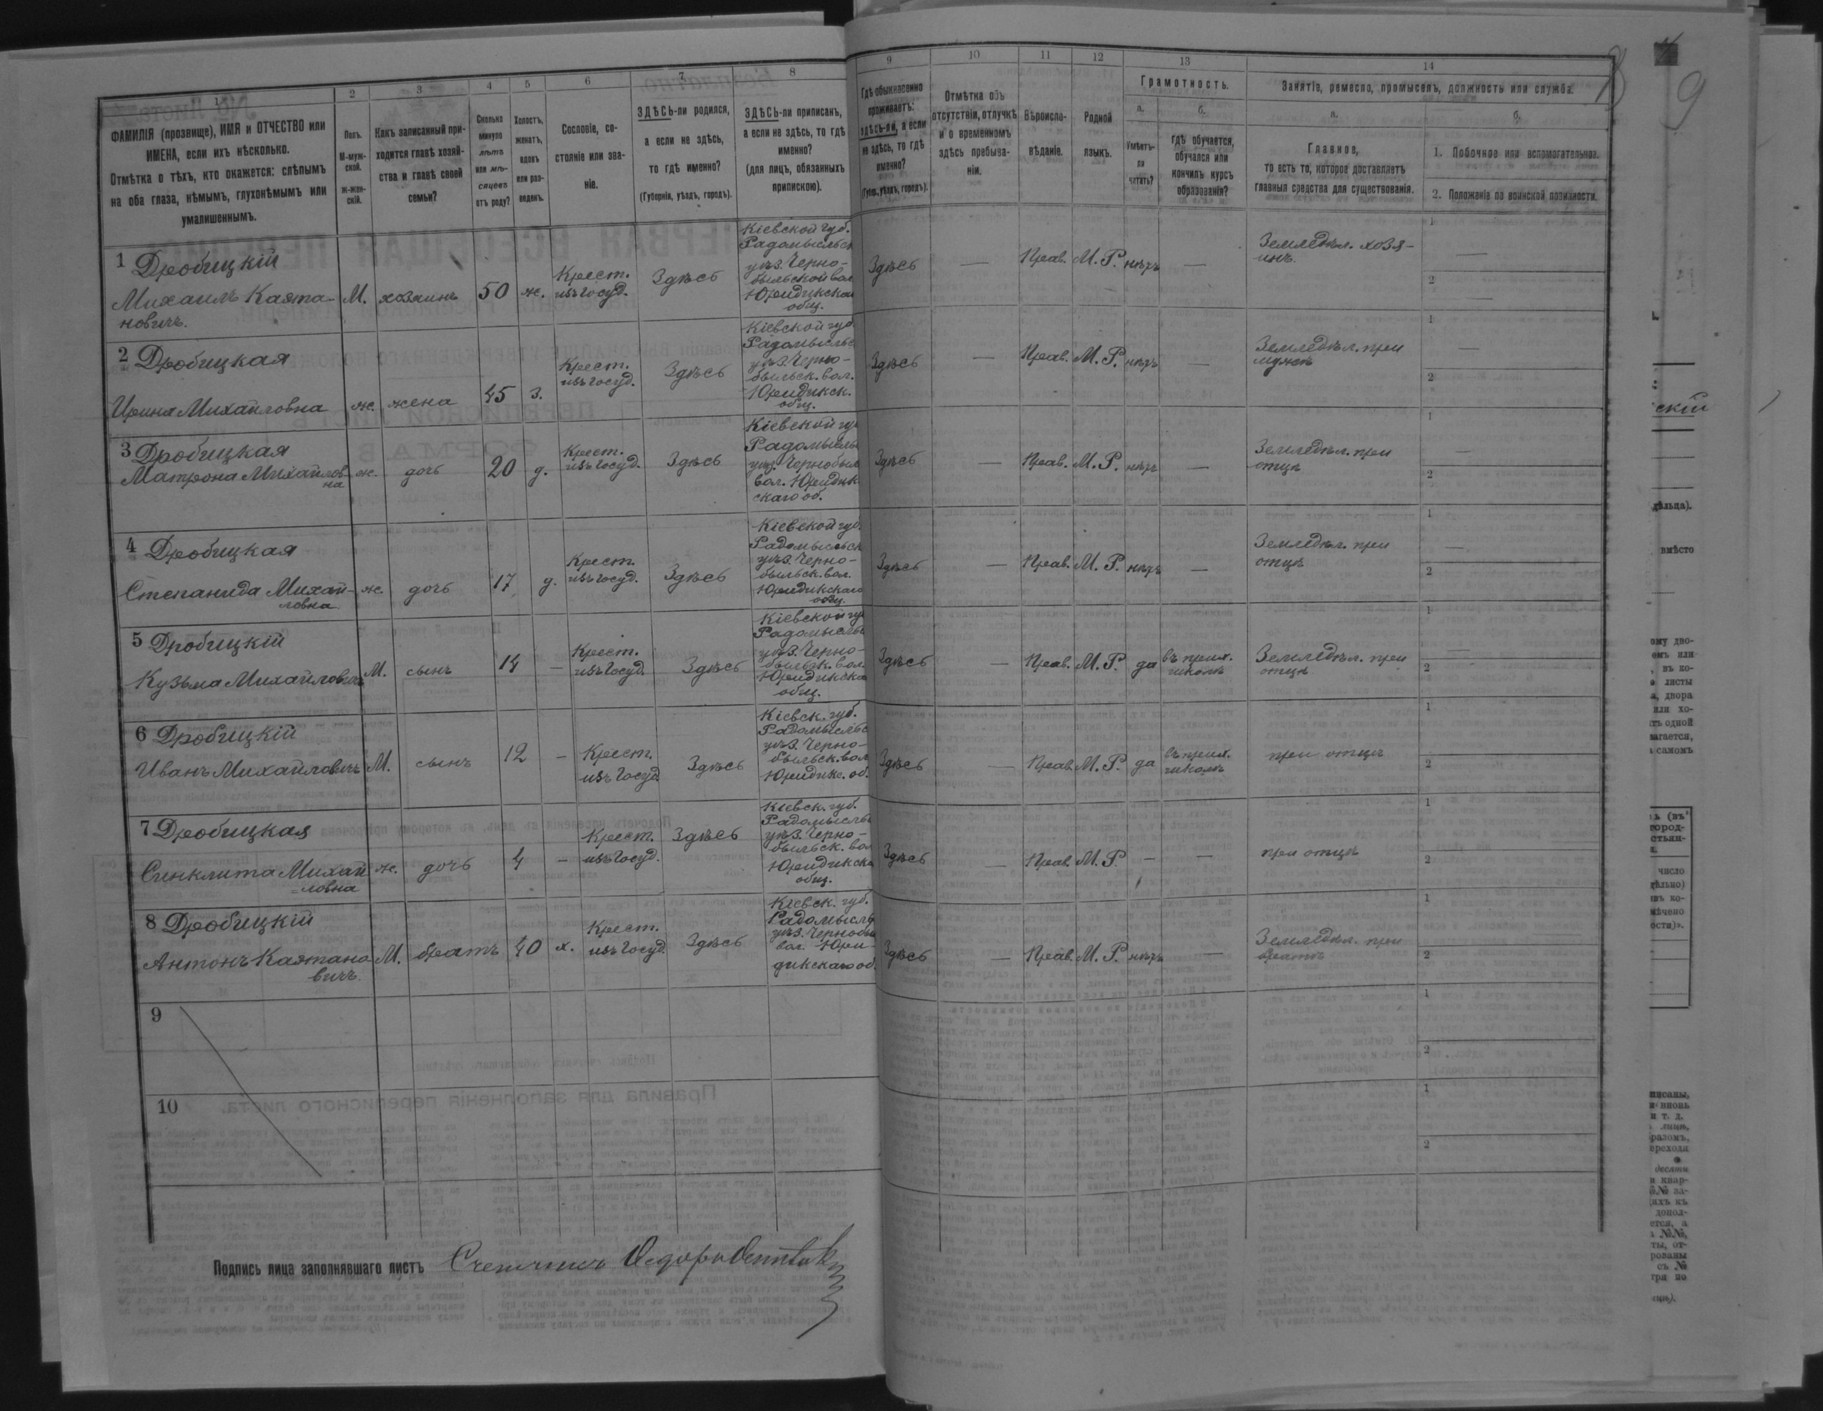 1 2 3 4 5 6 7 8 9 10 11 12 13 14
ФАМИЛІЯ (прозвище), ИМЯ и ОТЧЕСТВО или
ИМЕНА, если ихъ нѣсколько.
Отмѣтка о тѣхъ, кто окажется: слѣпымъ
на оба глаза, нѣмымъ, глухонѣмымъ или
умалишеннымъ.
Полъ.
М-муж-
ской.
ж-жен-
скій.
Какъ записанный при-
ходится главѣ хозяй-
ства и главѣ своей
семьи?
Сколько
минуло
лѣтъ
или мѣ-
сяцевъ
отъ роду?
Холостъ,
женатъ,
вдовъ
или раз-
веденъ.
Сословіе, со-
стояніе или зва-
ніе.
ЗДѢСЬ-ли родился,
а если не здѣсь,
то гдѣ именно?
(Губернія, уѣздъ, городъ).
ЗДѢСЬ-ли приписанъ,
а если не здѣсь, то гдѣ
именно?
(для лицъ, обязанныхъ
припискою).
Гдѣ обыкновенно
проживаетъ:
здѣсь-ли, а если
не здѣсь, то гдѣ
именно?
(Губ., уѣздъ, городъ).
Отмѣтка объ
отсутствіи, отлучкѣ
и о временномъ
здѣсь пребыва-
ніи.
Вѣроиспо-
вѣданіе.
Родной
языкъ.
Грамотность.
а.
Умѣетъ-
ли
читать?
б.
Гдѣ обучается,
обучался или
кончилъ курсъ
образованія?
Занятіе, ремесло, промыселъ, должность или служба.
а.
Главное,
то есть то, которое доставляетъ
главныя средства для существованія.
б.
1. Побочное или вспомогательное.
2. Положеніе по воинской повинности.
9
1 Дробицкій
Михаилъ Каэта-
новичъ.
М. хозяинъ 50 ж.
Крест.
изъ госуд.
Здѣсь
Кіевской губ.
Радомысльск
уѣз. Черно-
быльской вол.
Юридикской
общ.
Здѣсь — Прав. М. Р. нѣтъ —
Земледѣл. хозя-
инъ.
1 —
2 —
2 Дробицкая
Ирина Михайловна
ж. жена 45 з.
Крест.
изъ госуд.
Здѣсь
Кіевской губ
Радомысльс
уѣз. Черно-
быльск. вол.
Юридикск.
общ.
Здѣсь — Прав. М. Р. нѣтъ —
Земледѣл. при
мужѣ
1 —
2
3 Дробицкая
Матрона Михайлов
на
ж. дочь 20 д.
Крест.
изъ госуд.
Здѣсь
Кіевской гу
Радомысль
уѣз. Чернобыл
вол. Юридик
скаго об.
Здѣсь — Прав. М. Р. нѣтъ —
Земледѣл. при
отцѣ
1 —
2
4 Дробицкая
Степанида Михай-
ловна
ж. дочь 17 д.
Крест.
изъ госуд.
Здѣсь
Кіевской гу
Радомысльск
уѣз. Черно-
быльск. вол.
Юридикскаго
общ.
Здѣсь — Прав. М. Р. нѣтъ —
Земледѣл. при
отцѣ
1 —
2
5 Дробицкій
Кузьма Михайлович
М. сынъ 14 —
Крест.
изъ госуд.
Здѣсь
Кіевской гу
Радомысль
уѣз. Черно-
быльск. вол.
Юридикска
общ.
Здѣсь — Прав. М. Р. да
въ прих.
школѣ
Земледѣл. при
отцѣ
1 —
2
6 Дробицкій
Иванъ Михайловичъ
М. сынъ 12 —
Крест.
изъ госуд
Здѣсь
Кіевск. губ.
Радомысльс
уѣз. Черно-
быльск. вол
Юридикс. об.
Здѣсь — Прав. М. Р. да
въ прих.
школѣ
при отцѣ
1
2
7 Дробицкая
Синклита Михай
=ловна
ж. дочь 4 —
Крест.
изъ госуд.
Здѣсь
Кіевск. губ.
Радомысль
уѣз. Черно-
быльск. вол
Юридикска
общ.
Здѣсь — Прав. М. Р. — —
при отцѣ
1
2
8 Дробицкій
Антонъ Каэтано
вичъ.
М. братъ 40 х.
Крест.
изъ госуд
Здѣсь
Кіевск. губ.
Радомысль
уѣз. Чернобы
вол Юри-
дикскаго об.
Здѣсь — Прав. М. Р. нѣтъ —
Земледѣл. при
братѣ
1
2
9
1
2
10
1
2
Подпись лица заполнявшаго листъ Счетчикъ
скій
дѣльца).
вмѣсто